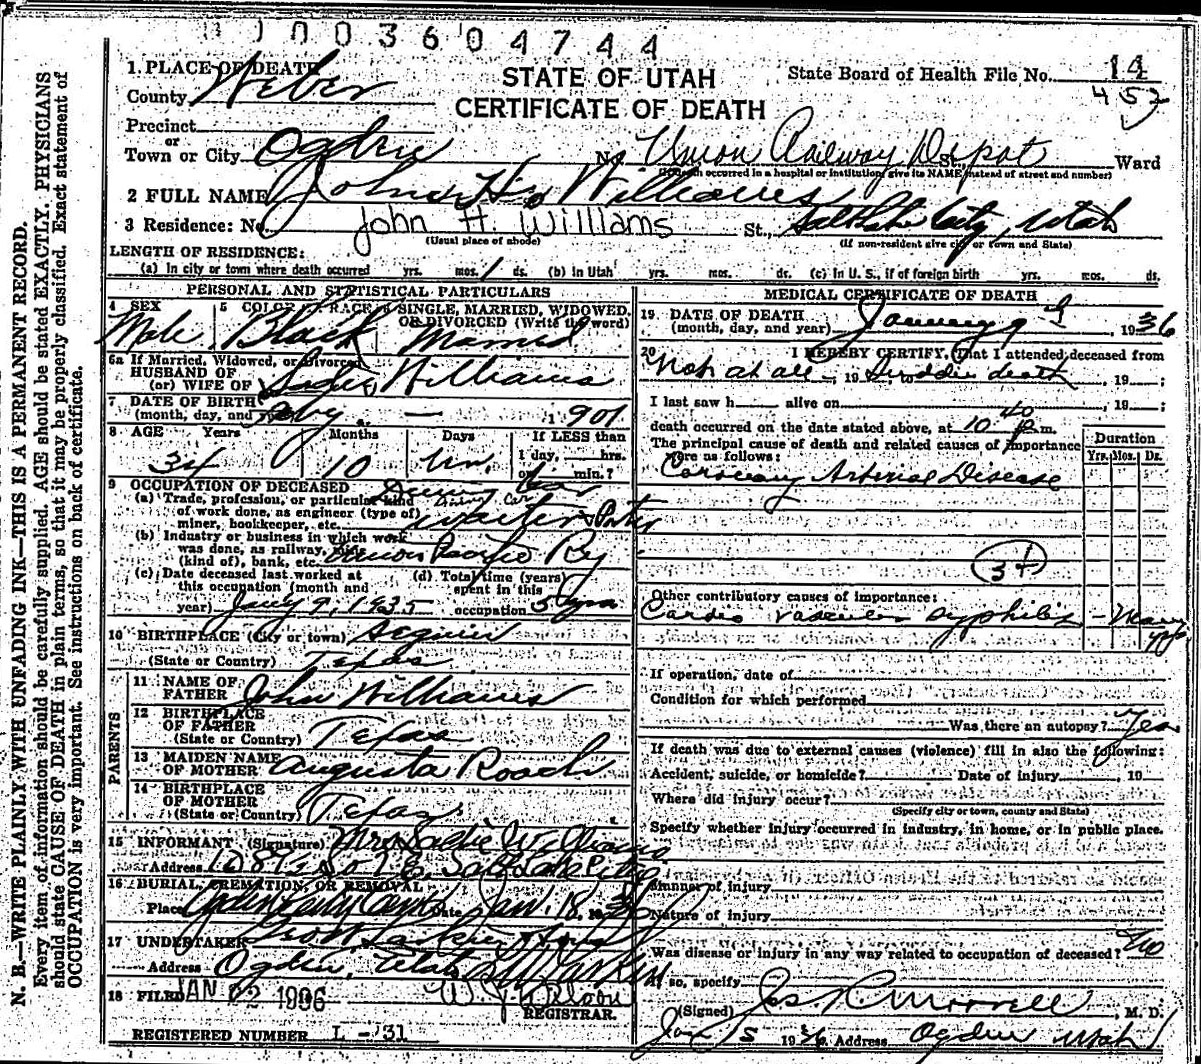 0 0 0 3 6 0 4 7 4 4
1. PLACE OF DEATH
County Weber
STATE OF UTAH
CERTIFICATE OF DEATH
State Board of Health File No. 14
452
Precinct
or
Town or City Ogden No. Union Railway Depot St., Ward
(If death occurred in a hospital or institution, give its NAME instead of street and number)
2 FULL NAME John H. Williams
3 Residence: No. John H. Williams St., Salt Lake City, Utah
(Usual place of abode) (If non-resident give city or town and State)
LENGTH OF RESIDENCE:
(a) In city or town where death occurred yrs. mos. 1 ds. (b) in Utah yrs. mos. ds. (c) in U. S., if of foreign birth yrs. mos. ds.
PERSONAL AND STATISTICAL PARTICULARS
4 SEX 5 COLOR OR RACE 6 SINGLE, MARRIED, WIDOWED,
OR DIVORCED (Write the word)
Male Black Married
6a If Married, Widowed, or Divorced
HUSBAND OF
(or) WIFE OF Sadie Williams
7 DATE OF BIRTH
(month, day, and year) — 1901
8 AGE Years Months Days If LESS than
1 day, hrs.
34 10 Un. or min.?
9 OCCUPATION OF DECEASED
(a) Trade, profession, or particular kind Dining Car
of work done, as engineer (type of)
miner, bookkeeper, etc. waiter Porter
(b) Industry or business in which work
was done, as railway, mine
(kind of), bank, etc. Union Pacific Ry
(c) Date deceased last worked at (d) Total time (years)
this occupation (month and spent in this
year) Jany 9, 1935 occupation 5 yrs
10 BIRTHPLACE (City or town) Seguin
(State or Country) Texas
PARENTS
11 NAME OF
FATHER John Williams
12 BIRTHPLACE
OF FATHER
(State or Country) Texas
13 MAIDEN NAME
OF MOTHER Augusta Roach
14 BIRTHPLACE
OF MOTHER
(State or Country) Texas
15 INFORMANT (Signature) Mrs Sadie Williams
Address So 7 E. Salt Lake City
16 BURIAL, CREMATION, OR REMOVAL
Place Ogden City Date Jan. 18, 1936
17 UNDERTAKER
Address Ogden, Utah
18 FILED JAN 22 1936 REGISTRAR.
REGISTERED NUMBER L - 31
MEDICAL CERTIFICATE OF DEATH
19 DATE OF DEATH
(month, day, and year) January 9 1936
20 I HEREBY CERTIFY, That I attended deceased from
Not at all, 19 , to Sudden death, 19 ;
I last saw h alive on , 19 ;
death occurred on the date stated above, at 10 40 m.
The principal cause of death and related causes of importance
were as follows:
Duration
Yrs. Mos. Ds.
Coronary Arterial Disease
Other contributory causes of importance:
Cardio vascular syphilis - Many
yrs
If operation, date of
Condition for which performed
Was there an autopsy? Yes
If death was due to external causes (violence) fill in also the following:
Accident, suicide, or homicide? Date of injury , 19
Where did injury occur?
(Specify city or town, county and State)
Specify whether injury occurred in industry, in home, or in public place.
Manner of injury
Nature of injury
Was disease or injury in any way related to occupation of deceased? No
If so, specify
(Signed) Jas. R. Morrell, M. D.
Jan 15 1936 Address Ogden Utah
N. B.—WRITE PLAINLY WITH UNFADING INK—THIS IS A PERMANENT RECORD.
Every item of information should be carefully supplied. AGE should be stated EXACTLY. PHYSICIANS
should state CAUSE OF DEATH in plain terms, so that it may be properly classified. Exact statement of
OCCUPATION is very important. See instructions on back of certificate.